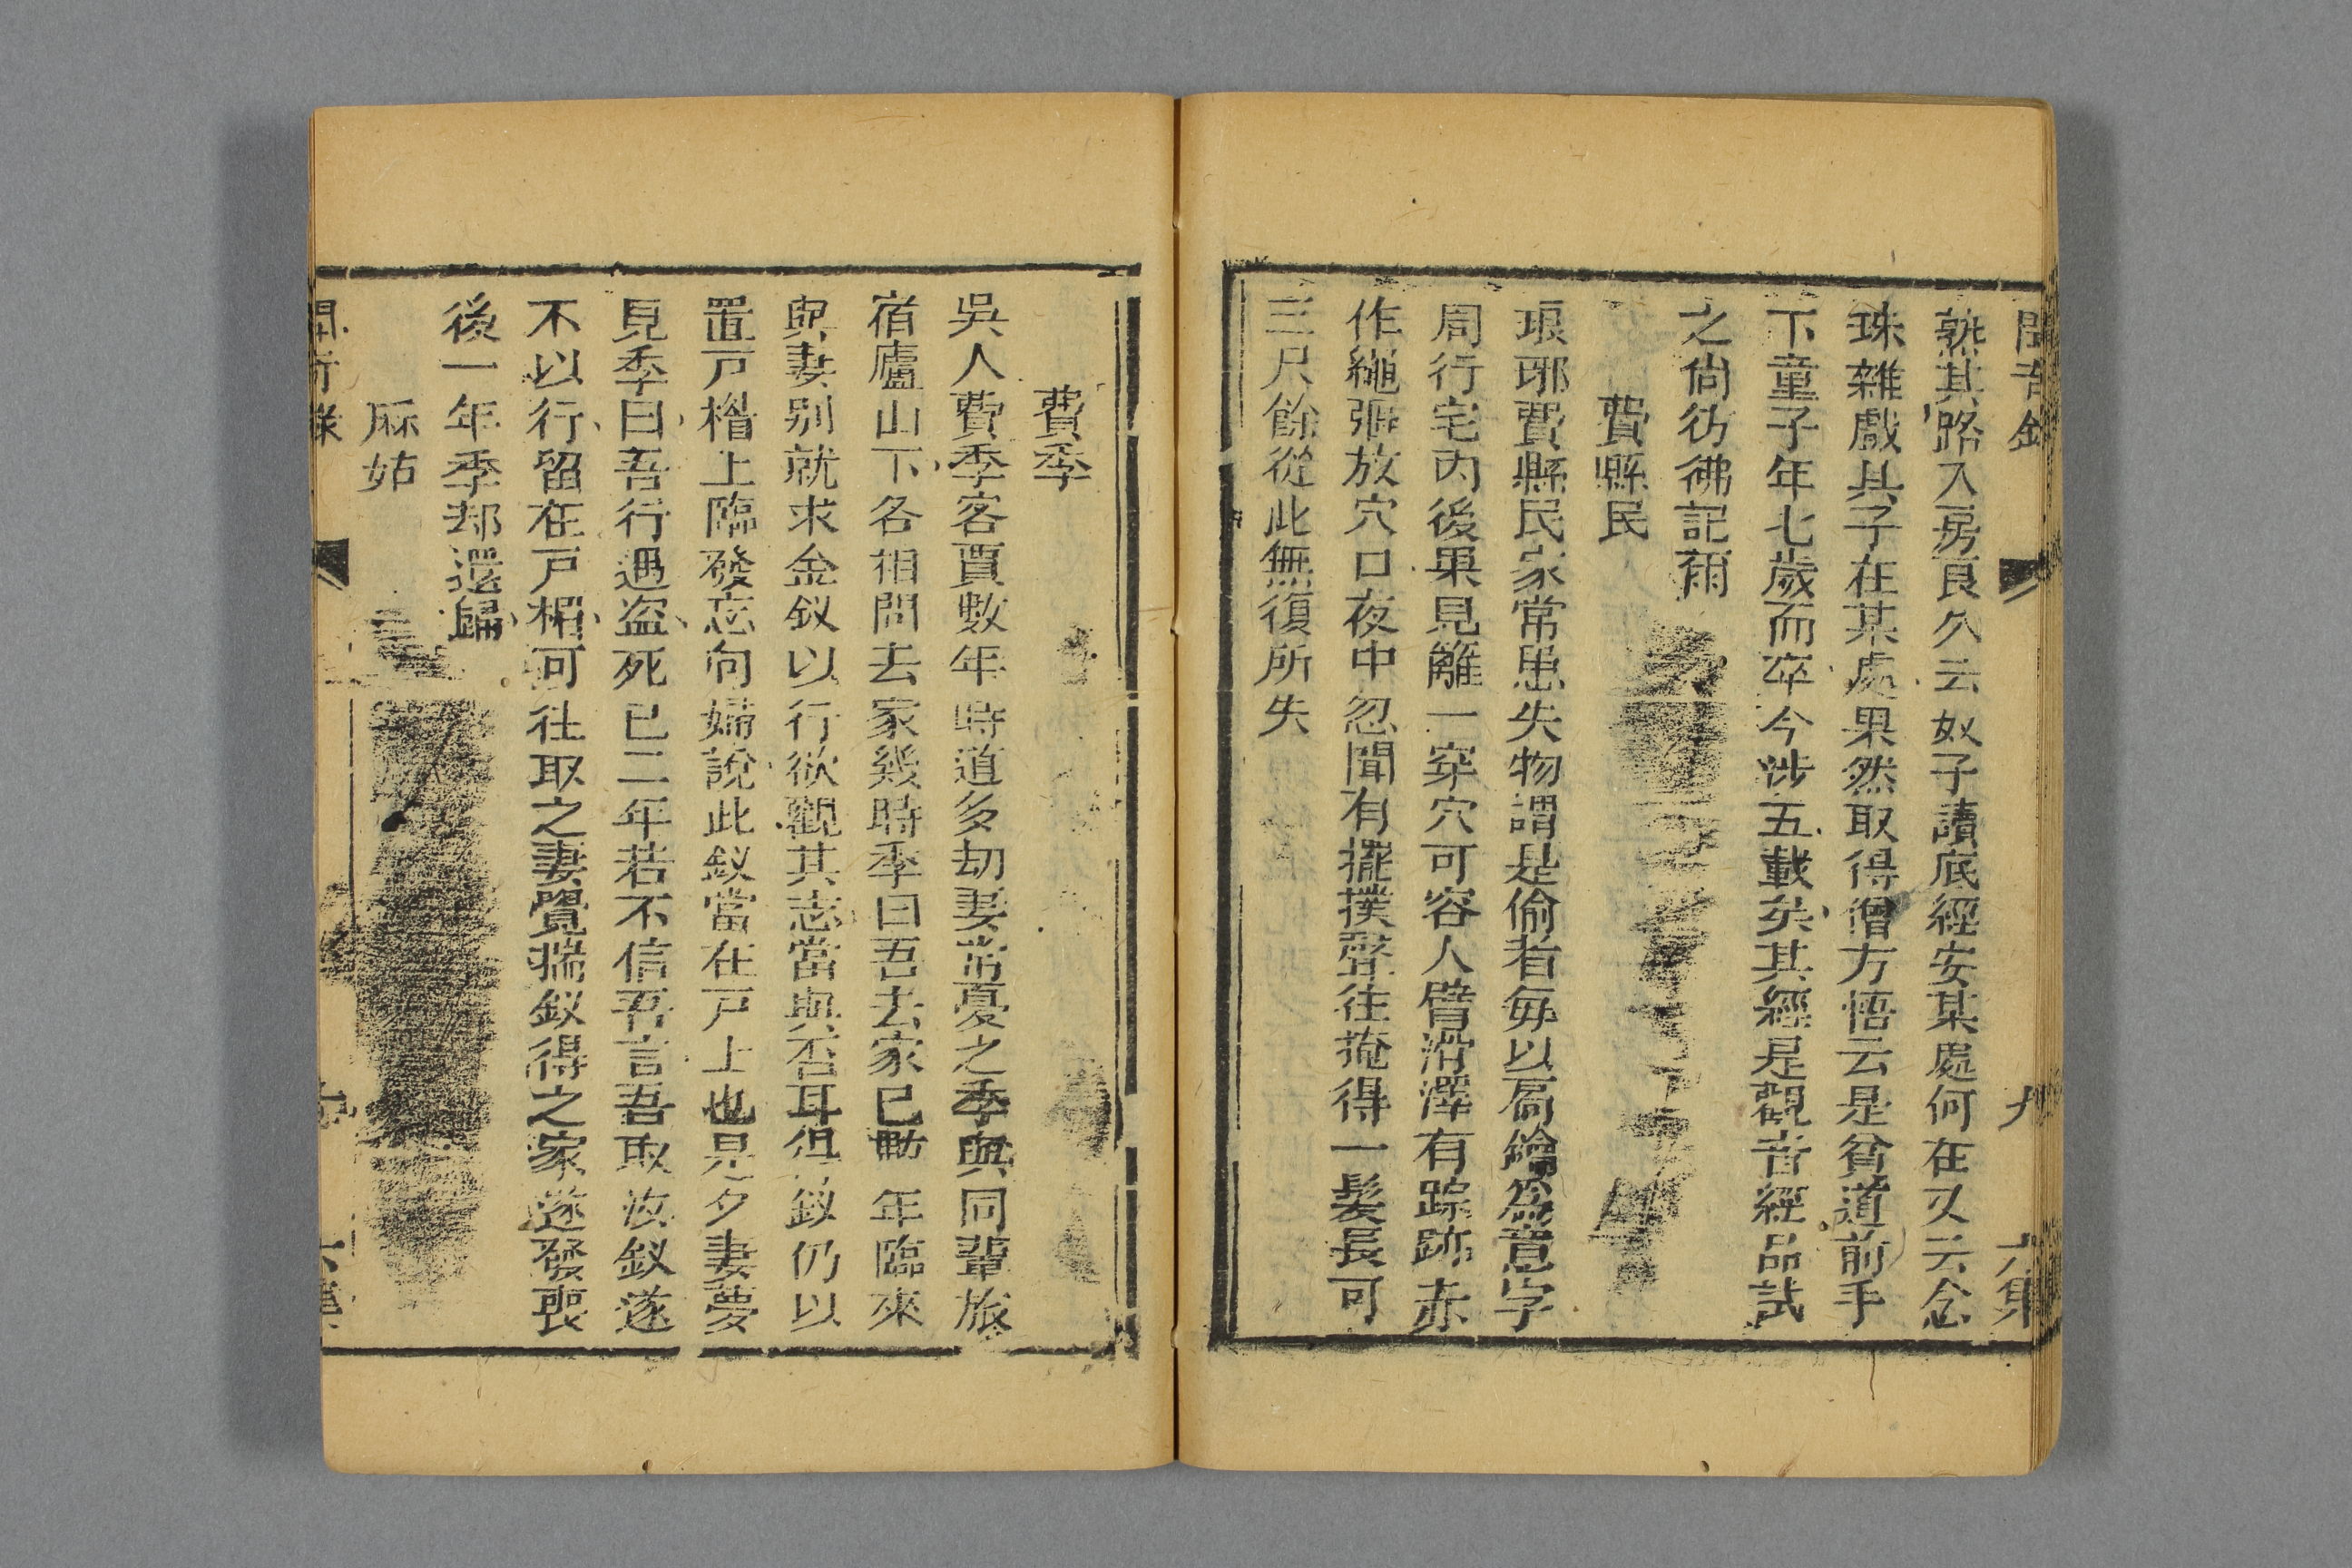 熟其路入房良久云奴子讀底經安某處何在又云念
珠雜戲具子在某處果然取得僧方悟云是貧道前手
下童子年七歲而卒今涉五載矣其經是觀音經品試
之尙彷彿記爾
費縣民
琅琊費縣民家常患失物謂是偷者每以扃鑰爲意字
周行宅內後果見籬一穿穴可容人臂滑澤有踪跡赤
作繩彄放穴口夜中忽聞有擺撲聲往掩得一髮長可
三尺餘從此無復所失
費季
吳人費季客賈數年時道多刼妻常憂之季與同輩旅
宿廬山下各相問去家幾時季曰吾去家已數年臨來
與妻别就求金釵以行欲觀其志當與否耳得釵仍以
置戸楣上臨發忘向婦說此釵當在戸上也是夕妻夢
見季曰吾行遇盜死已二年若不信吾言吾取汝釵遂
不以行留在戸楣可往取之妻覺揣釵得之家遂發喪
後一年季却還歸
麻姑